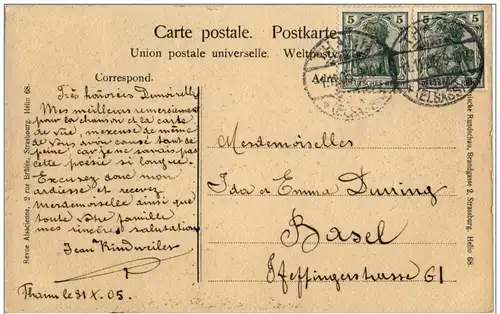 Carte postale. Postkarte
Union postale universelle. Weltpostv
Correspond.
Adre
5 5
5 5
DEUTSCHES REICH
THANN
(ELSASS)
Très honorées Demoiselle
Mes meilleurs remerciement
pour la chanson et la carte
de vue, mexcuse de même
de vous avoir causé tant de
peine car je ne savais pas
cette poésie si longue.
Excusez donc mon
ardiesse et recevez
Merdemoiselle ainsi que
toute votre famille
mes sincères salutation
Jean Rindweiler
Thann le 31 X. 05.
Merdemoiselles
Ida et Emma Durring
Basel
Pfeffingerstrasse 61
Revue Alsacienne, 2 rue Brûlée, Strasbourg. Hélio 68.
sche Rundschau, Brandgasse 2, Strassburg. Hélio 68.